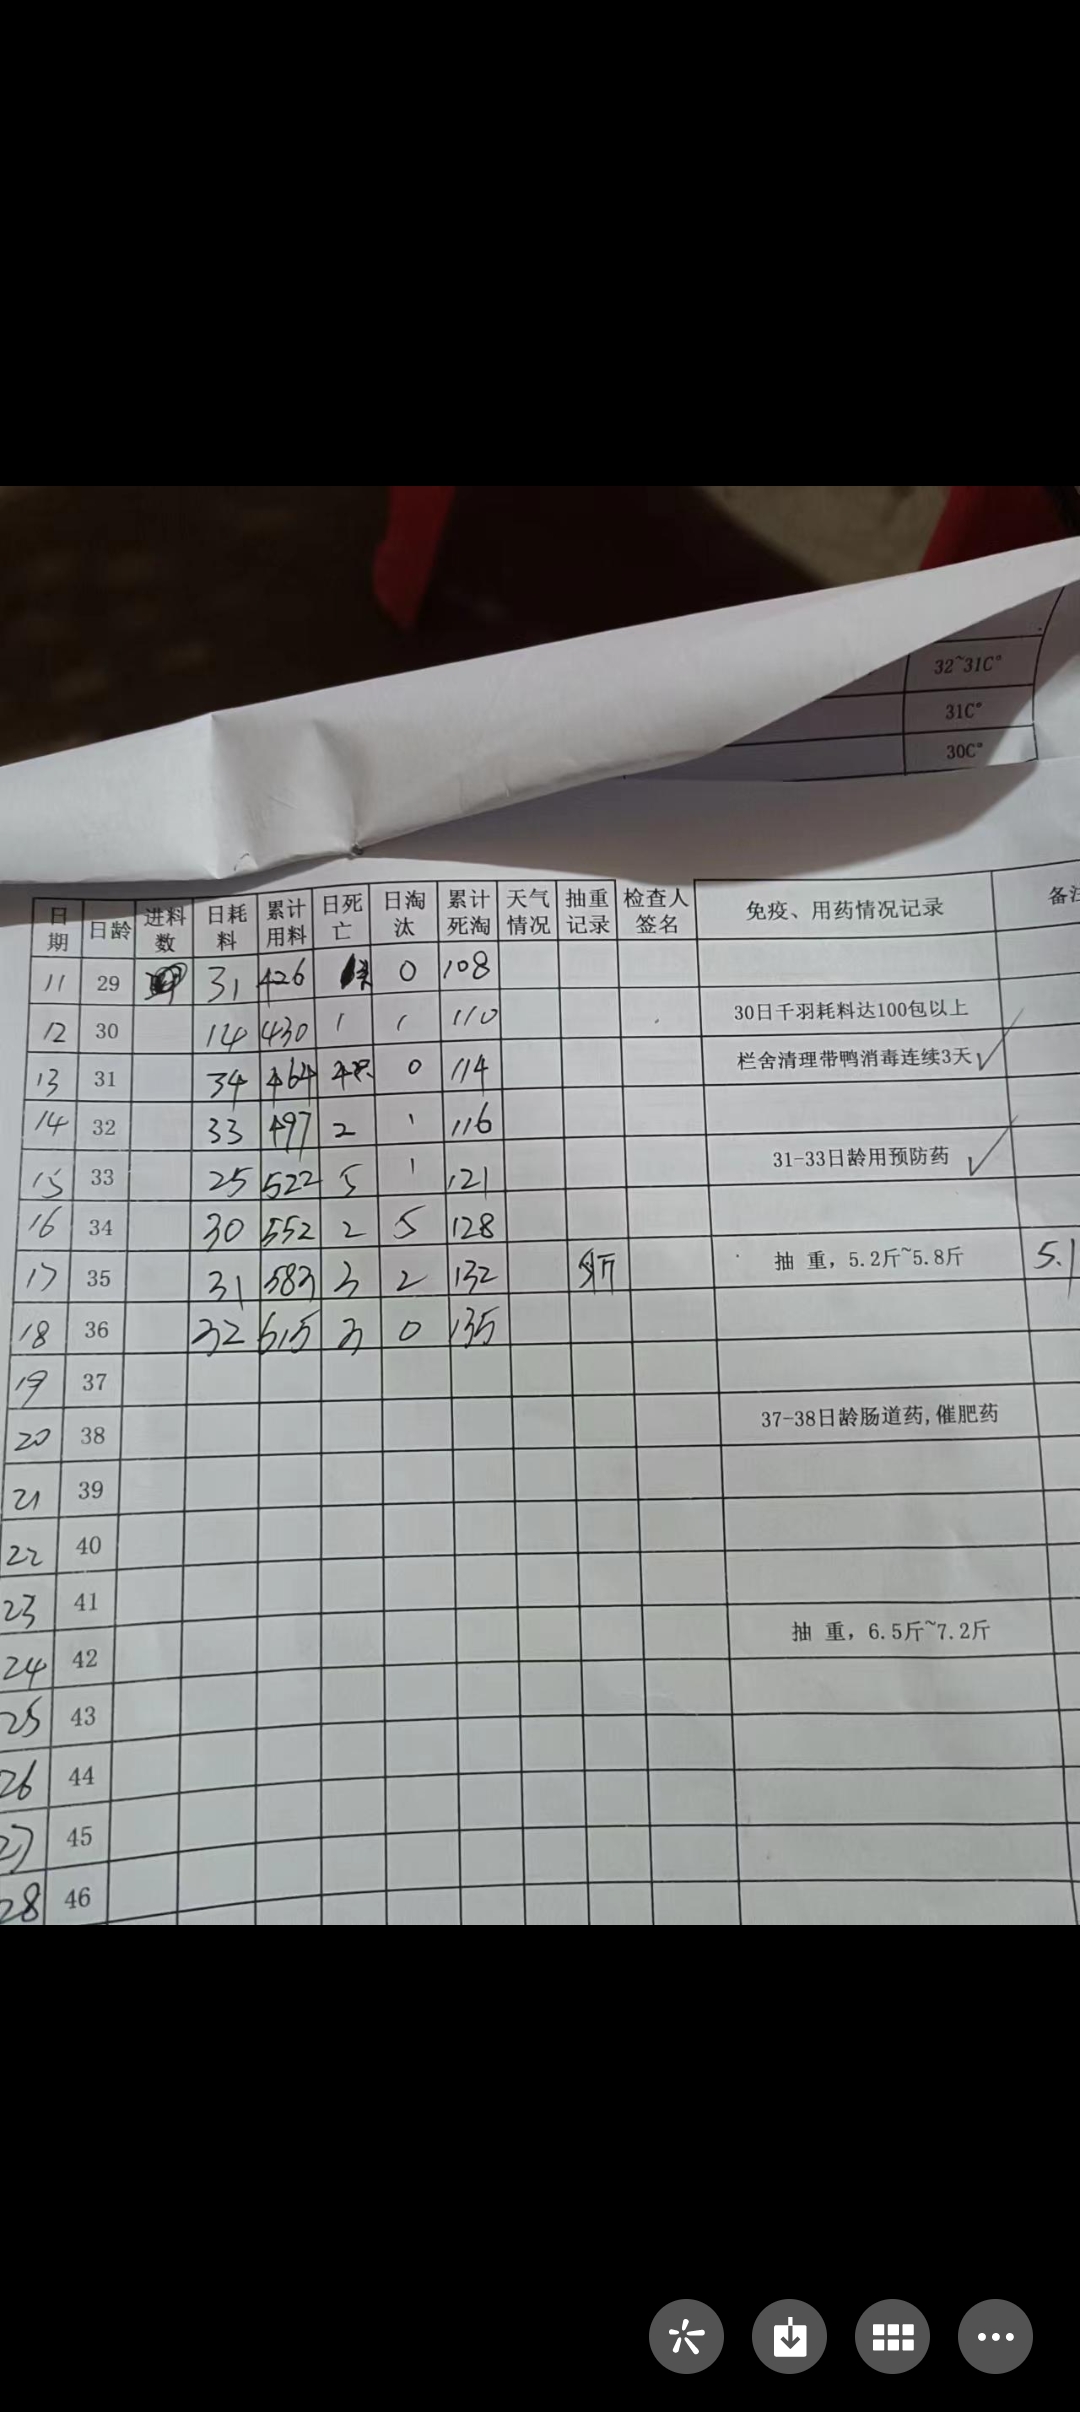 32~31C°
31C°
30C°
日期 日龄 进料数 日耗料 累计用料 日死亡 日淘汰 累计死淘 天气情况 抽重记录 检查人签名 免疫、用药情况记录 备注
11 29 31 426 0 108
12 30 14 430 1 1 110 30日千羽耗料达100包以上
13 31 34 464 0 114 栏舍清理带鸭消毒连续3天 ✓
14 32 33 497 2 1 116
15 33 25 522 5 1 121 31-33日龄用预防药 ✓
16 34 30 552 2 5 128
17 35 31 583 3 2 132 抽 重，5.2斤~5.8斤 5.1
18 36 32 615 3 0 135
19 37
20 38 37-38日龄肠道药,催肥药
21 39
22 40
23 41
24 42 抽 重，6.5斤~7.2斤
25 43
26 44
27 45
28 46